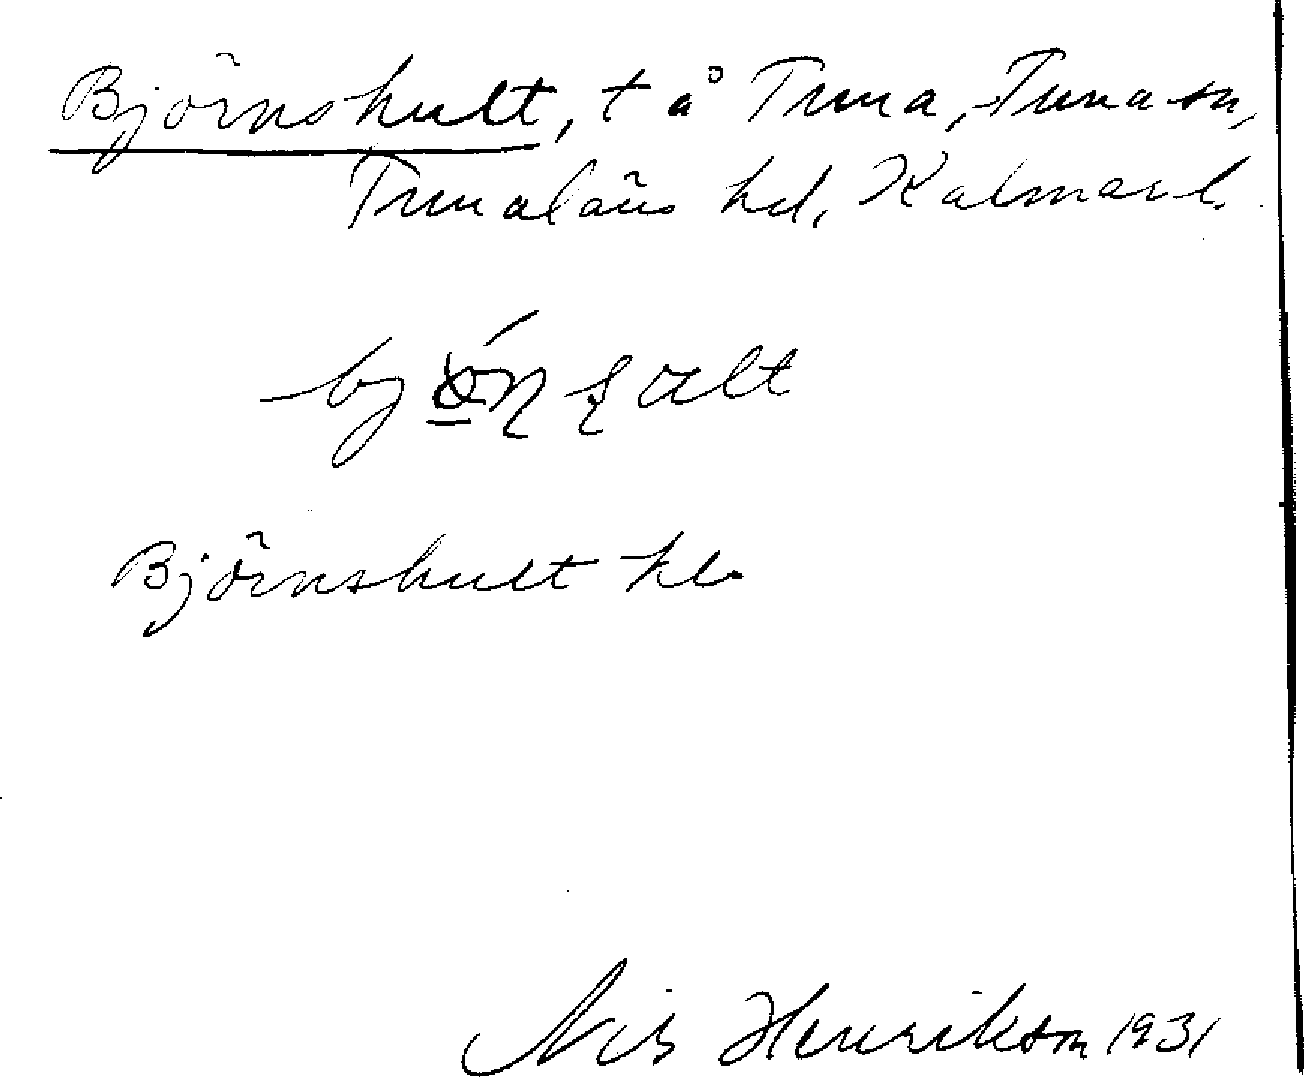 Björnshult, t å Tuna, Tuna sn,
Tunaläns hd, Kalmar l.
Björnshult kb
Nils Henrikson 1931